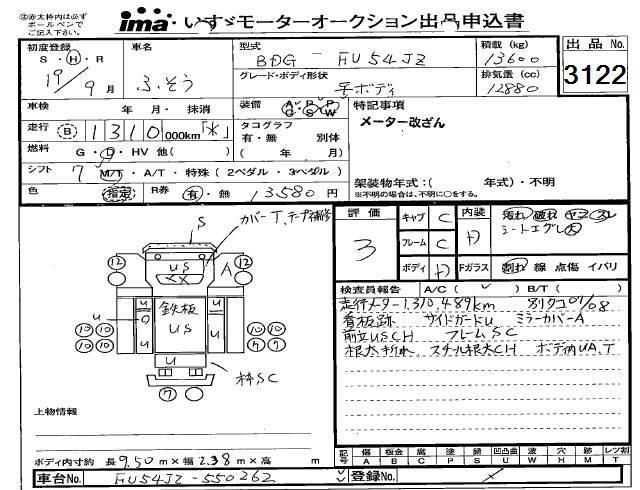 ②赤太枠内は必ず
ボールペンで
ご記入下さい。
ima・いすゞモーターオークション出品申込書
初度登録
S・H・R
19年 9月
車名
ふそう
型式
BDG-FU54JZ
積載 (kg)
13600
グレード・ボディ形状
平ボディ
排気量 (cc)
12880
出品No.
3122
車検 年・月・抹消
装備 A/C P/S P/W
走行 B 1310000km「*」
タコグラフ
有・無 別体
( 年 月)
燃料 G・D・HV 他( )
シフト 7 M/T・A/T・特殊 (2ペダル・3ペダル)
色 指定 R券 有・無 13,580円
特記事項
メーター改ざん
架装物年式:( 年式)・不明
※不明の場合は、不明に○をする。
評価
3
キャブ C
フレーム C
ボディ D
内装 D
汚れ 破れ ヤニ スレ
シートエグレ大
Fガラス 割れ 線 点傷 イバリ
検査員報告 A/C( ) B/T( )
走行メーター1,310,489km 別リタコ01/08
看板跡 サイドガードU ミラーカバーA
前立USCH フレームSC
根太折れ スチール根太CH ボデ内UA,T
S
カバーT,テープ補修
12
12
US
A
U
U
U
鉄板
US
10
10
10
10
10
10
7
7
U
枠SC
7
上物情報
ボディ内寸約 長9.50m×幅2.38m×高 m
車台No. FU54JZ-550262
記号 傷A 板金B 腐C 塗P 錆S 凹凸曲U 凹W 穴H 跡M レツ割T
登録No.